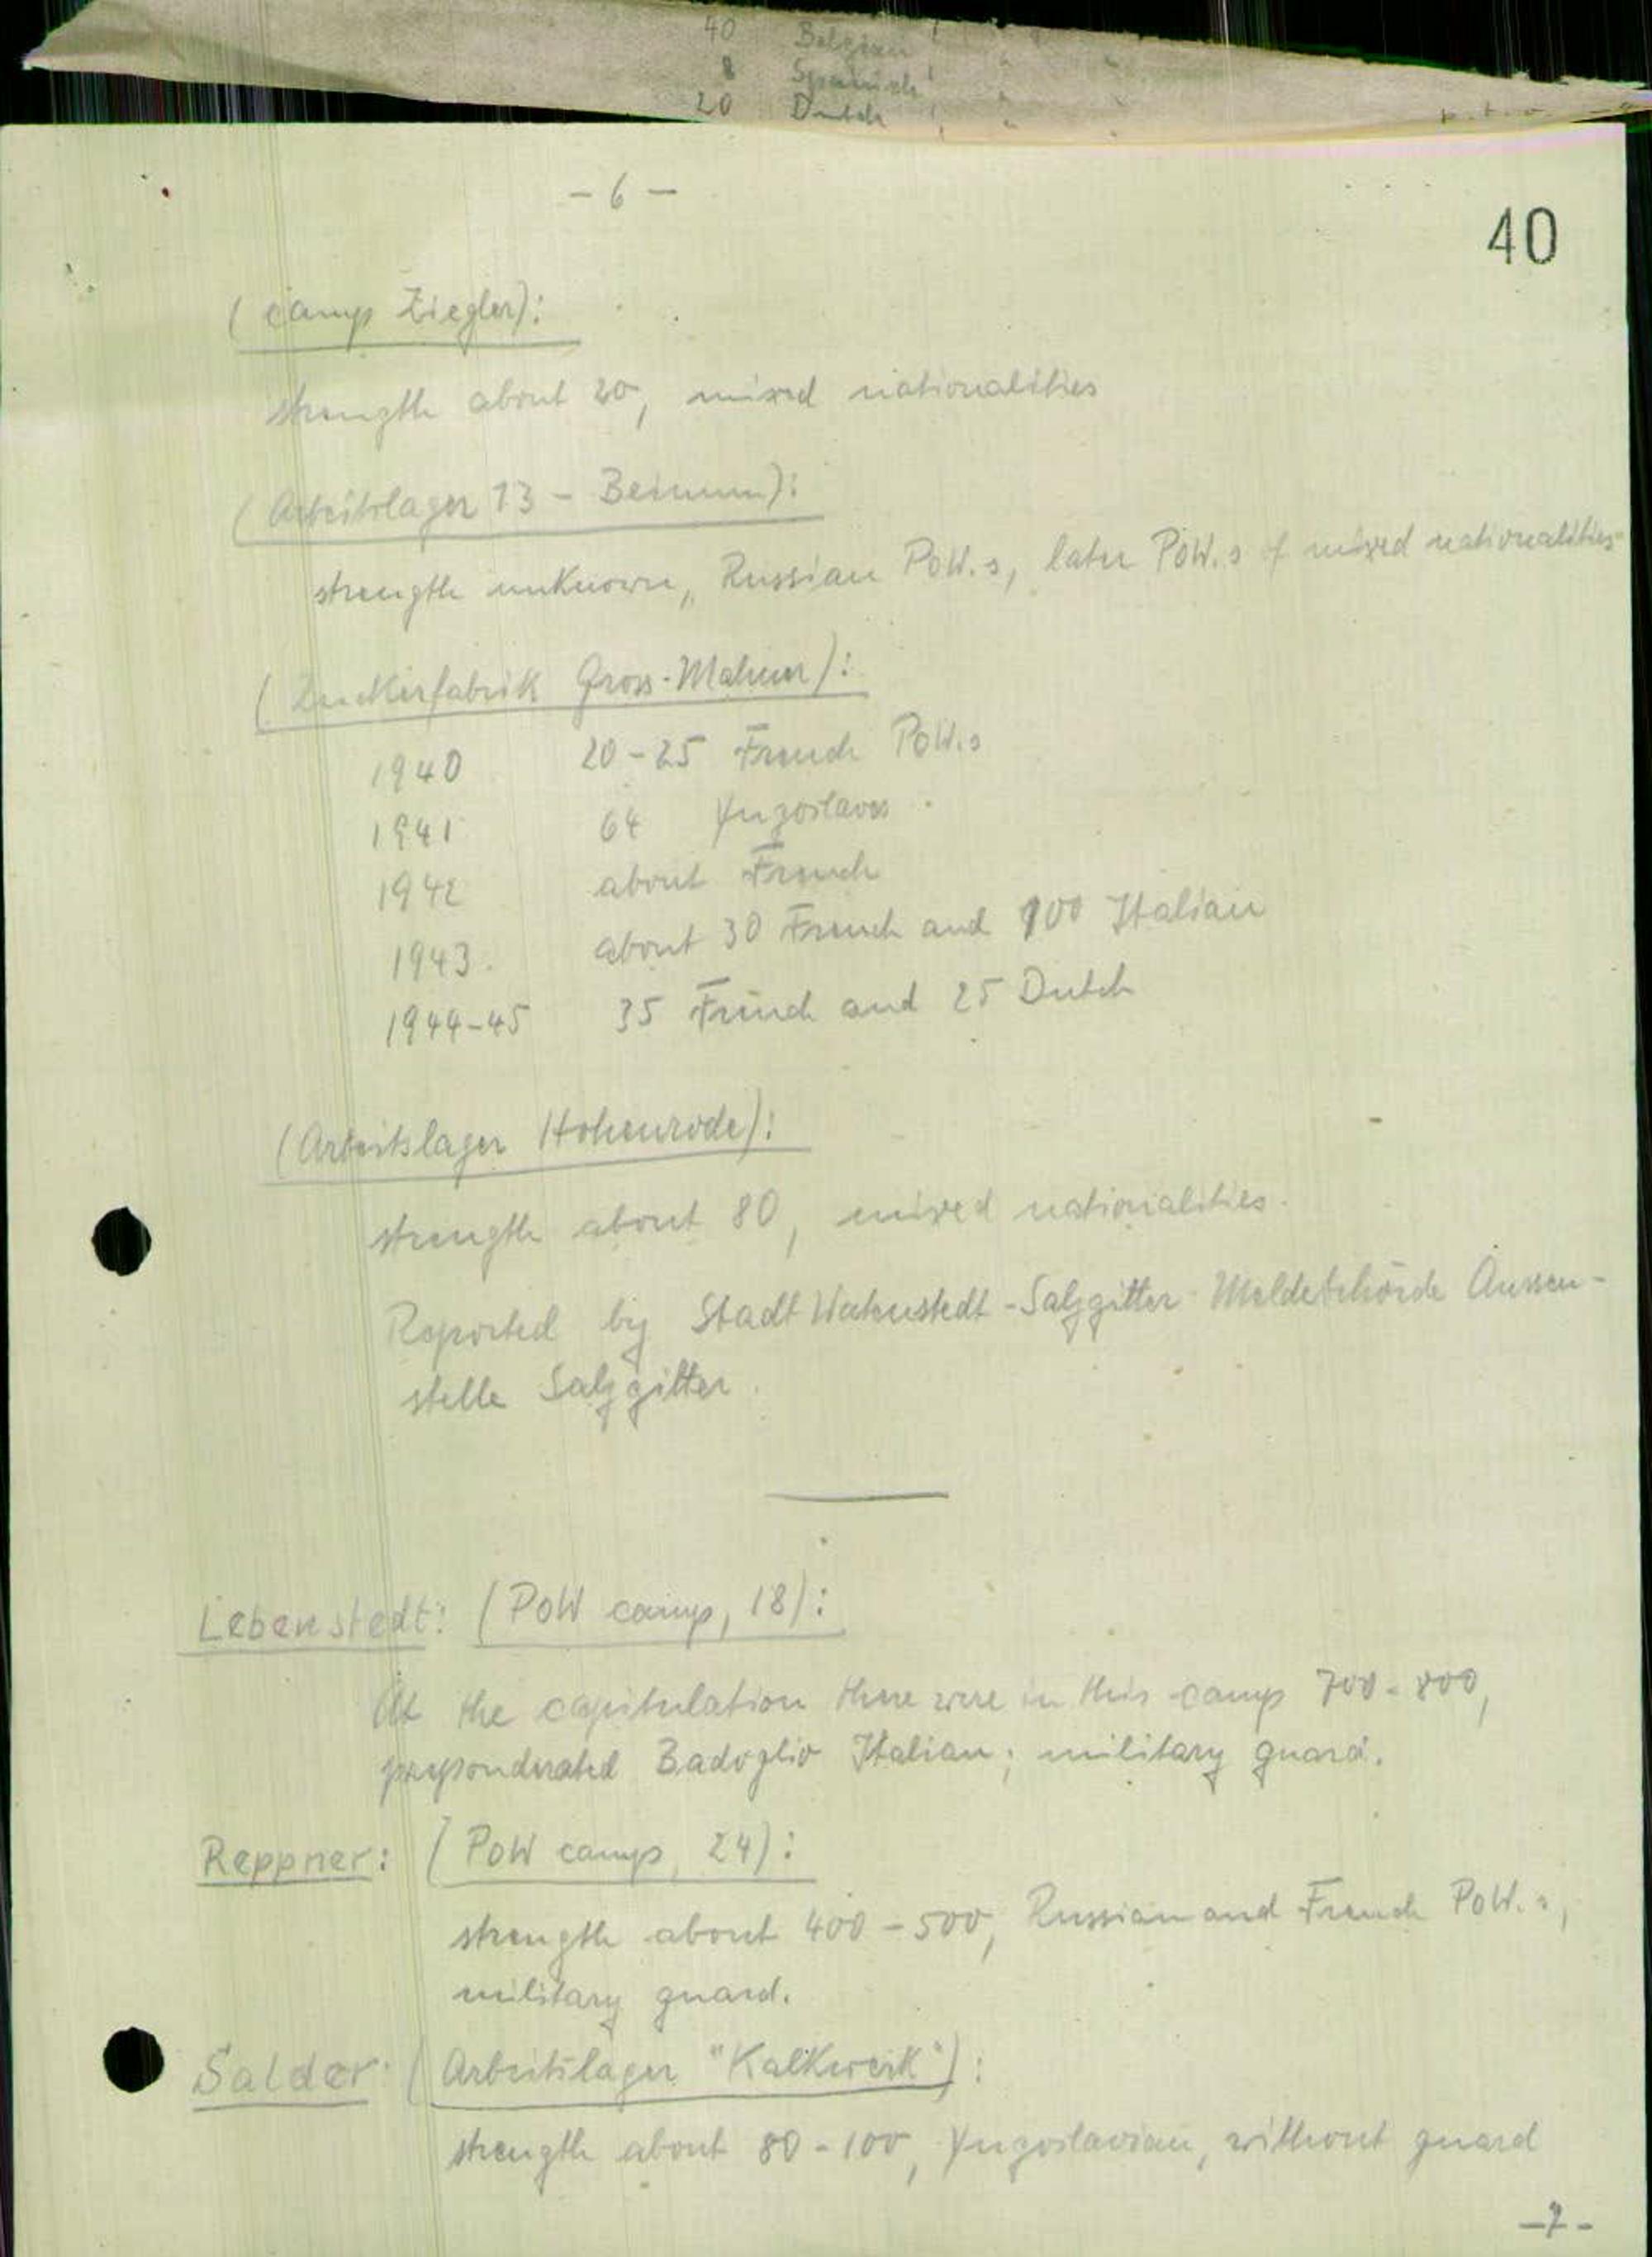 40 Belgian " "
8 Spanish " "
20 Dutch " "
p.t.o.
- 6 -
40
(camp Ziegler):
strength about 20, mixed nationalities
(Arbeitslager 13 - Beinum):
strength unknown, Russian PoW.s, later PoW.s of mixed nationalities
(Zuckerfabrik Gross-Mahner):
1940 20-25 French PoW.s
1941 64 Yugoslavs
1942 about French
1943. about 30 French and 100 Italian
1944-45 35 French and 25 Dutch
(Arbeitslager Hohenrode):
strength about 80, mixed nationalities.
Reported by Stadt Watenstedt-Salzgitter Meldebehörde Aussen-
stelle Salzgitter.
Lebenstedt: (PoW camp, 18):
At the capitulation there were in this camp 700-800,
preponderated Badoglio Italian; military guard.
Reppner: (PoW camp, 24):
strength about 400-500, Russian and French PoW.s,
military guard.
Salder: (Arbeitslager "Kalkwerk"):
strength about 80-100, Yugoslavian, without guard
-7-